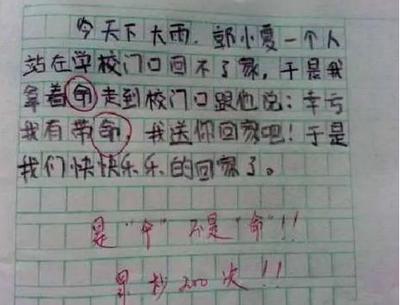 今天下大雨，郭小夏一个人
站在学校门口回不了家，于是我
拿着命走到校门口跟他说：幸亏
我有带命，我送你回家吧！于是
我们快快乐乐的回家了。
是“伞”不是“命”!!
罚抄200次!!